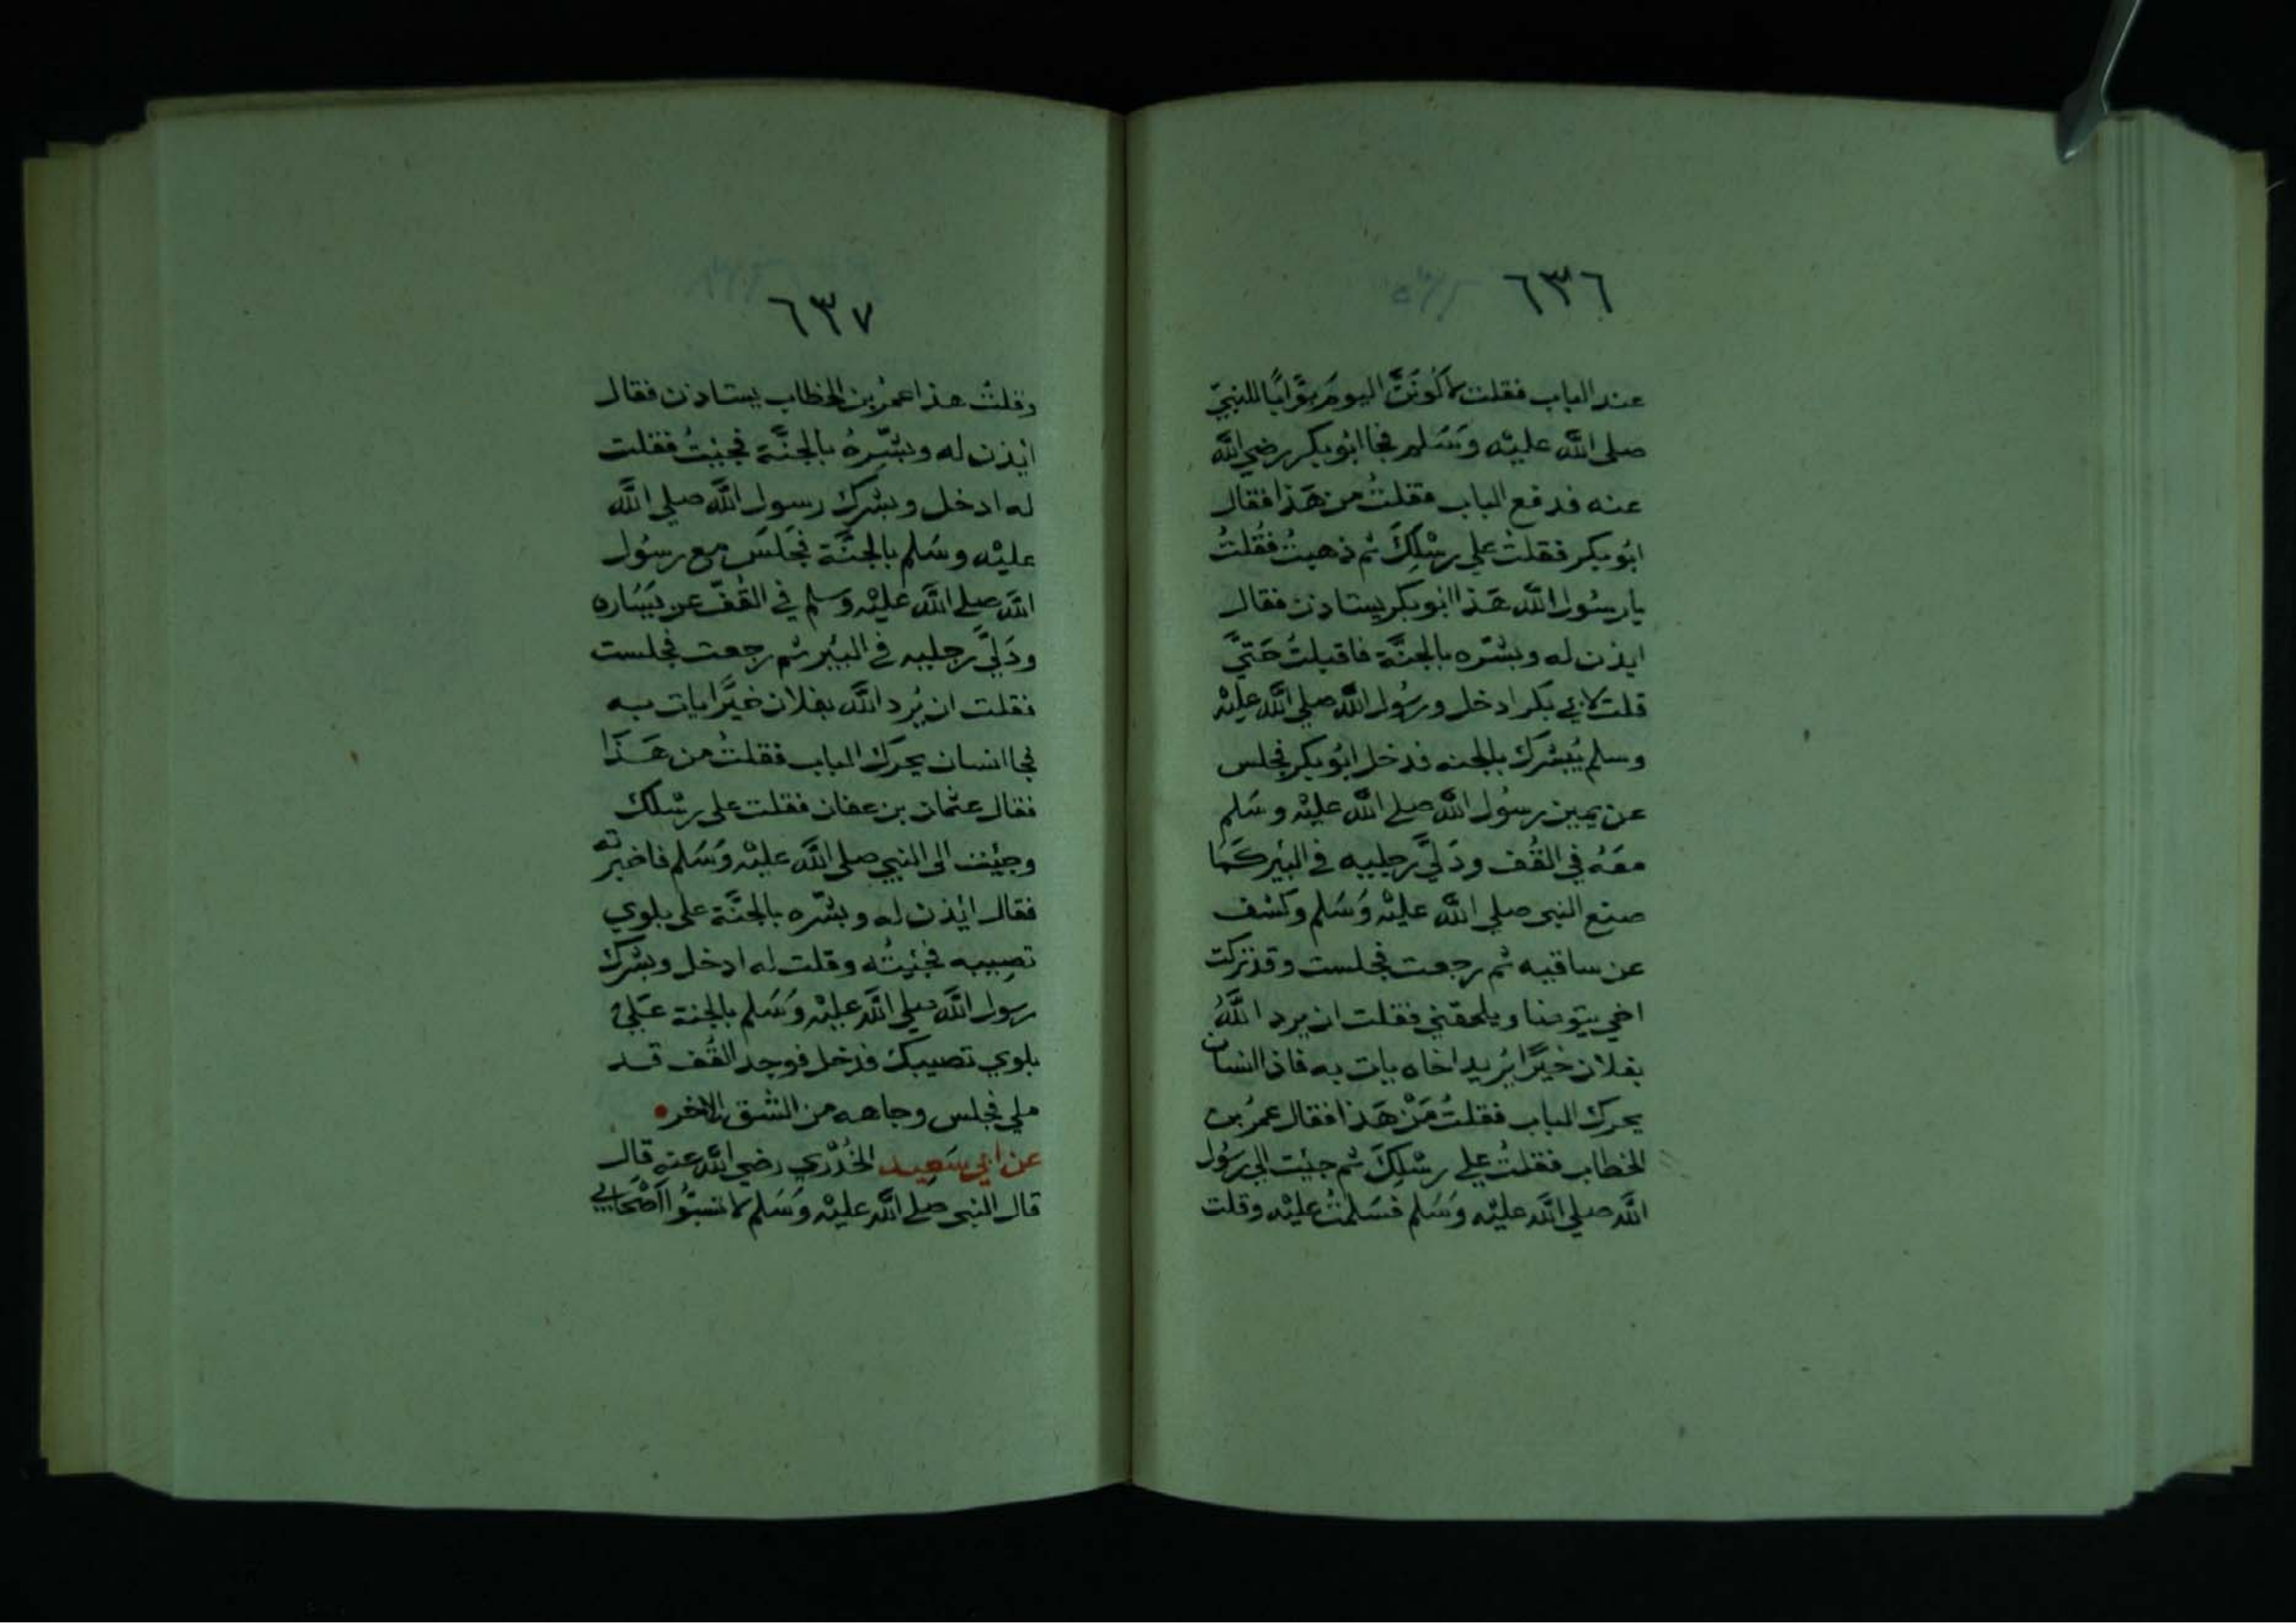 ٦٣٦
عند الباب فقلت لاكُونَنَّ اليومَ بَوَّابًا للنبيّ
صلى الله عليْه وَسَلم فجا ابُو بكر رضي الله
عنه فدفع الباب فقلتُ من هَذا فقال
ابُو بكر فقلتُ علي رِسْلِكَ ثم ذهبتُ فقُلتُ
يا رسُول الله هَذا ابو بكر يستاذن فقال
ايذن له وبشّره بالجنَّة فاقبلتُ حَتيَّ
قلت لابي بكر ادخل ورسُول الله صلي الله عليْه
وسلم يُبشرك بالجنه فدخل ابُو بكر فجلس
عن يمين رسُول الله صلے الله عليْه وسَلم
معَهُ في القُف ودَليَّ رجليه في البئير كَمَا
صنع النبي صلي الله عليْه وَسَلم وكشف
عن ساقيه ثم رجعت فجلست وقد تركت
اخي يتوضا ويلحقني فقلت ان يرد اللَّهُ
بفلان خَيْرًا يُريد اخاه يات به فاذا انسان
يحرك الباب فقلتُ مَنْ هَذا فقال عمرُ بن
الخطاب فقلتُ علي رِسْلِكَ ثم جئت الي رسُول
الله صلي الله عليْه وَسَلم فسَلمتُ عليْه وقلت
٦٣٧
وقلتُ هذا عمرُ بن الخطاب يستاذن فقال
ايذن له وبشّرهُ بالجنَّة فجئتُ فقلت
له ادخل وبشرك رسول الله صلي الله
عليْه وسَلم بالجنَّة فجَلسَ مع رسُول
الله صلے الله عليْه وَسلم في القُفّ عن يَسَاره
ودَليَّ رجليه في البئير ثم رجعت فجلست
فقلت ان يُرد الله بفلان خيَّرا يات به
فجا انسان يحرك الباب فقلتُ من هَذَا
فقال عثمان بن عفان فقلت على رسْلك
وجئت الى النبي صلى الله عليْه وَسَلم فاخبرته
فقال ايْذن له وبشّره بالجنَّة على بلوي
تصيبه فجئيتُه وقلت له ادخل وبشرك
رسول الله صلي الله عليْه وَسَلم بالجنة عَلي
بلوي تصيبك فدخل فوجد القُف قد
ملي فجلس وجاهه من الشق الاخر
عن ابي سَعيد الخُدْري رضي الله عنه قال
قال النبي صلے الله عليْه وَسَلم لا تسبُّوا اَصْحَابي